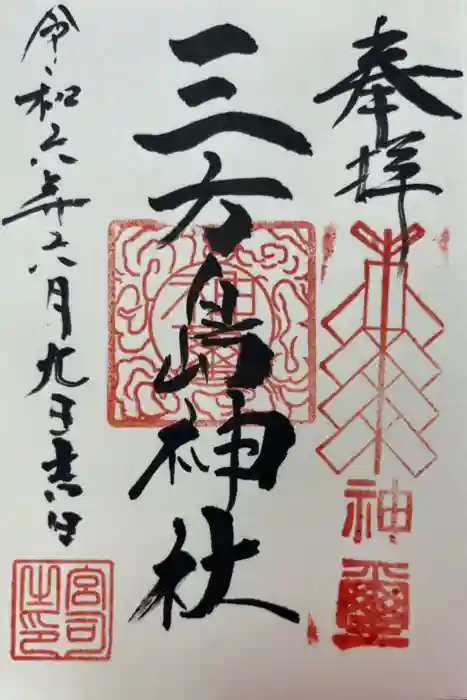 奉拝
神璽
三方島神社
神璽
令和六年六月九于吉日
宮司之印